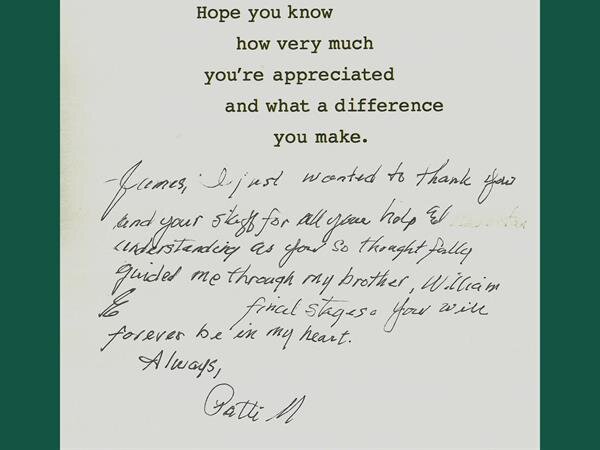 Hope you know
how very much
you're appreciated
and what a difference
you make.
James, I just wanted to thank you
and your staff for all your help &
understanding as you so thoughtfully
guided me through my brother, William
final stages. You will
forever be in my heart.
Always,
Patti M